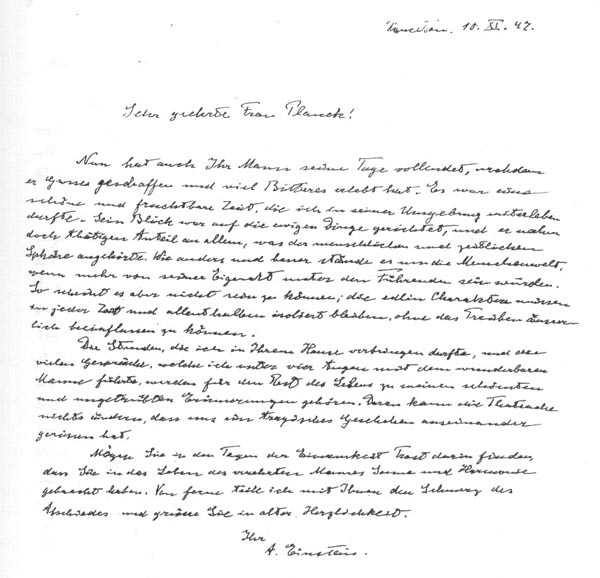 Princeton. 10. XI. 47.
Sehr geehrte Frau Planck!
Nun hat auch Ihr Mann seine Tage vollendet, nachdem
er Grosses geschaffen und viel Bitteres erlebt hat. Es war eine
schöne und fruchtbare Zeit, die ich in seiner Umgebung miterleben
durfte. Sein Blick war auf die ewigen Dinge gerichtet, und er nahm
doch thätigen Anteil an allem, was der menschlichen und zeitlichen
Sphäre angehörte. Wie anders und besser stände es um die Menschenwelt,
wenn mehr von seiner Eigenart unter den Führenden sein würden.
So scheint es aber nicht sein zu können; die edlen Charaktere müssen
in jeder Zeit und allenthalben isoliert bleiben, ohne das Treiben äusser-
lich beeinflussen zu können.
Die Stunden, die ich in Ihrem Hause verbringen durfte, und die
vielen Gespräche, welche ich unter vier Augen mit dem wunderbaren
Manne führte, werden für den Rest des Lebens zu meinen schönsten
und ungetrübten Erinnerungen gehören. Daran kann die Thatsache
nichts ändern, dass uns ein tragisches Geschehen auseinander
gerissen hat.
Mögen Sie in den Tagen der Einsamkeit Trost darin finden,
dass Sie in das Leben des verehrten Mannes Sonne und Harmonie
gebracht haben. Von ferne teile ich mit Ihnen den Schmerz des
Abschiedes und grüsse Sie in alter Herzlichkeit.
Ihr
A. Einstein.